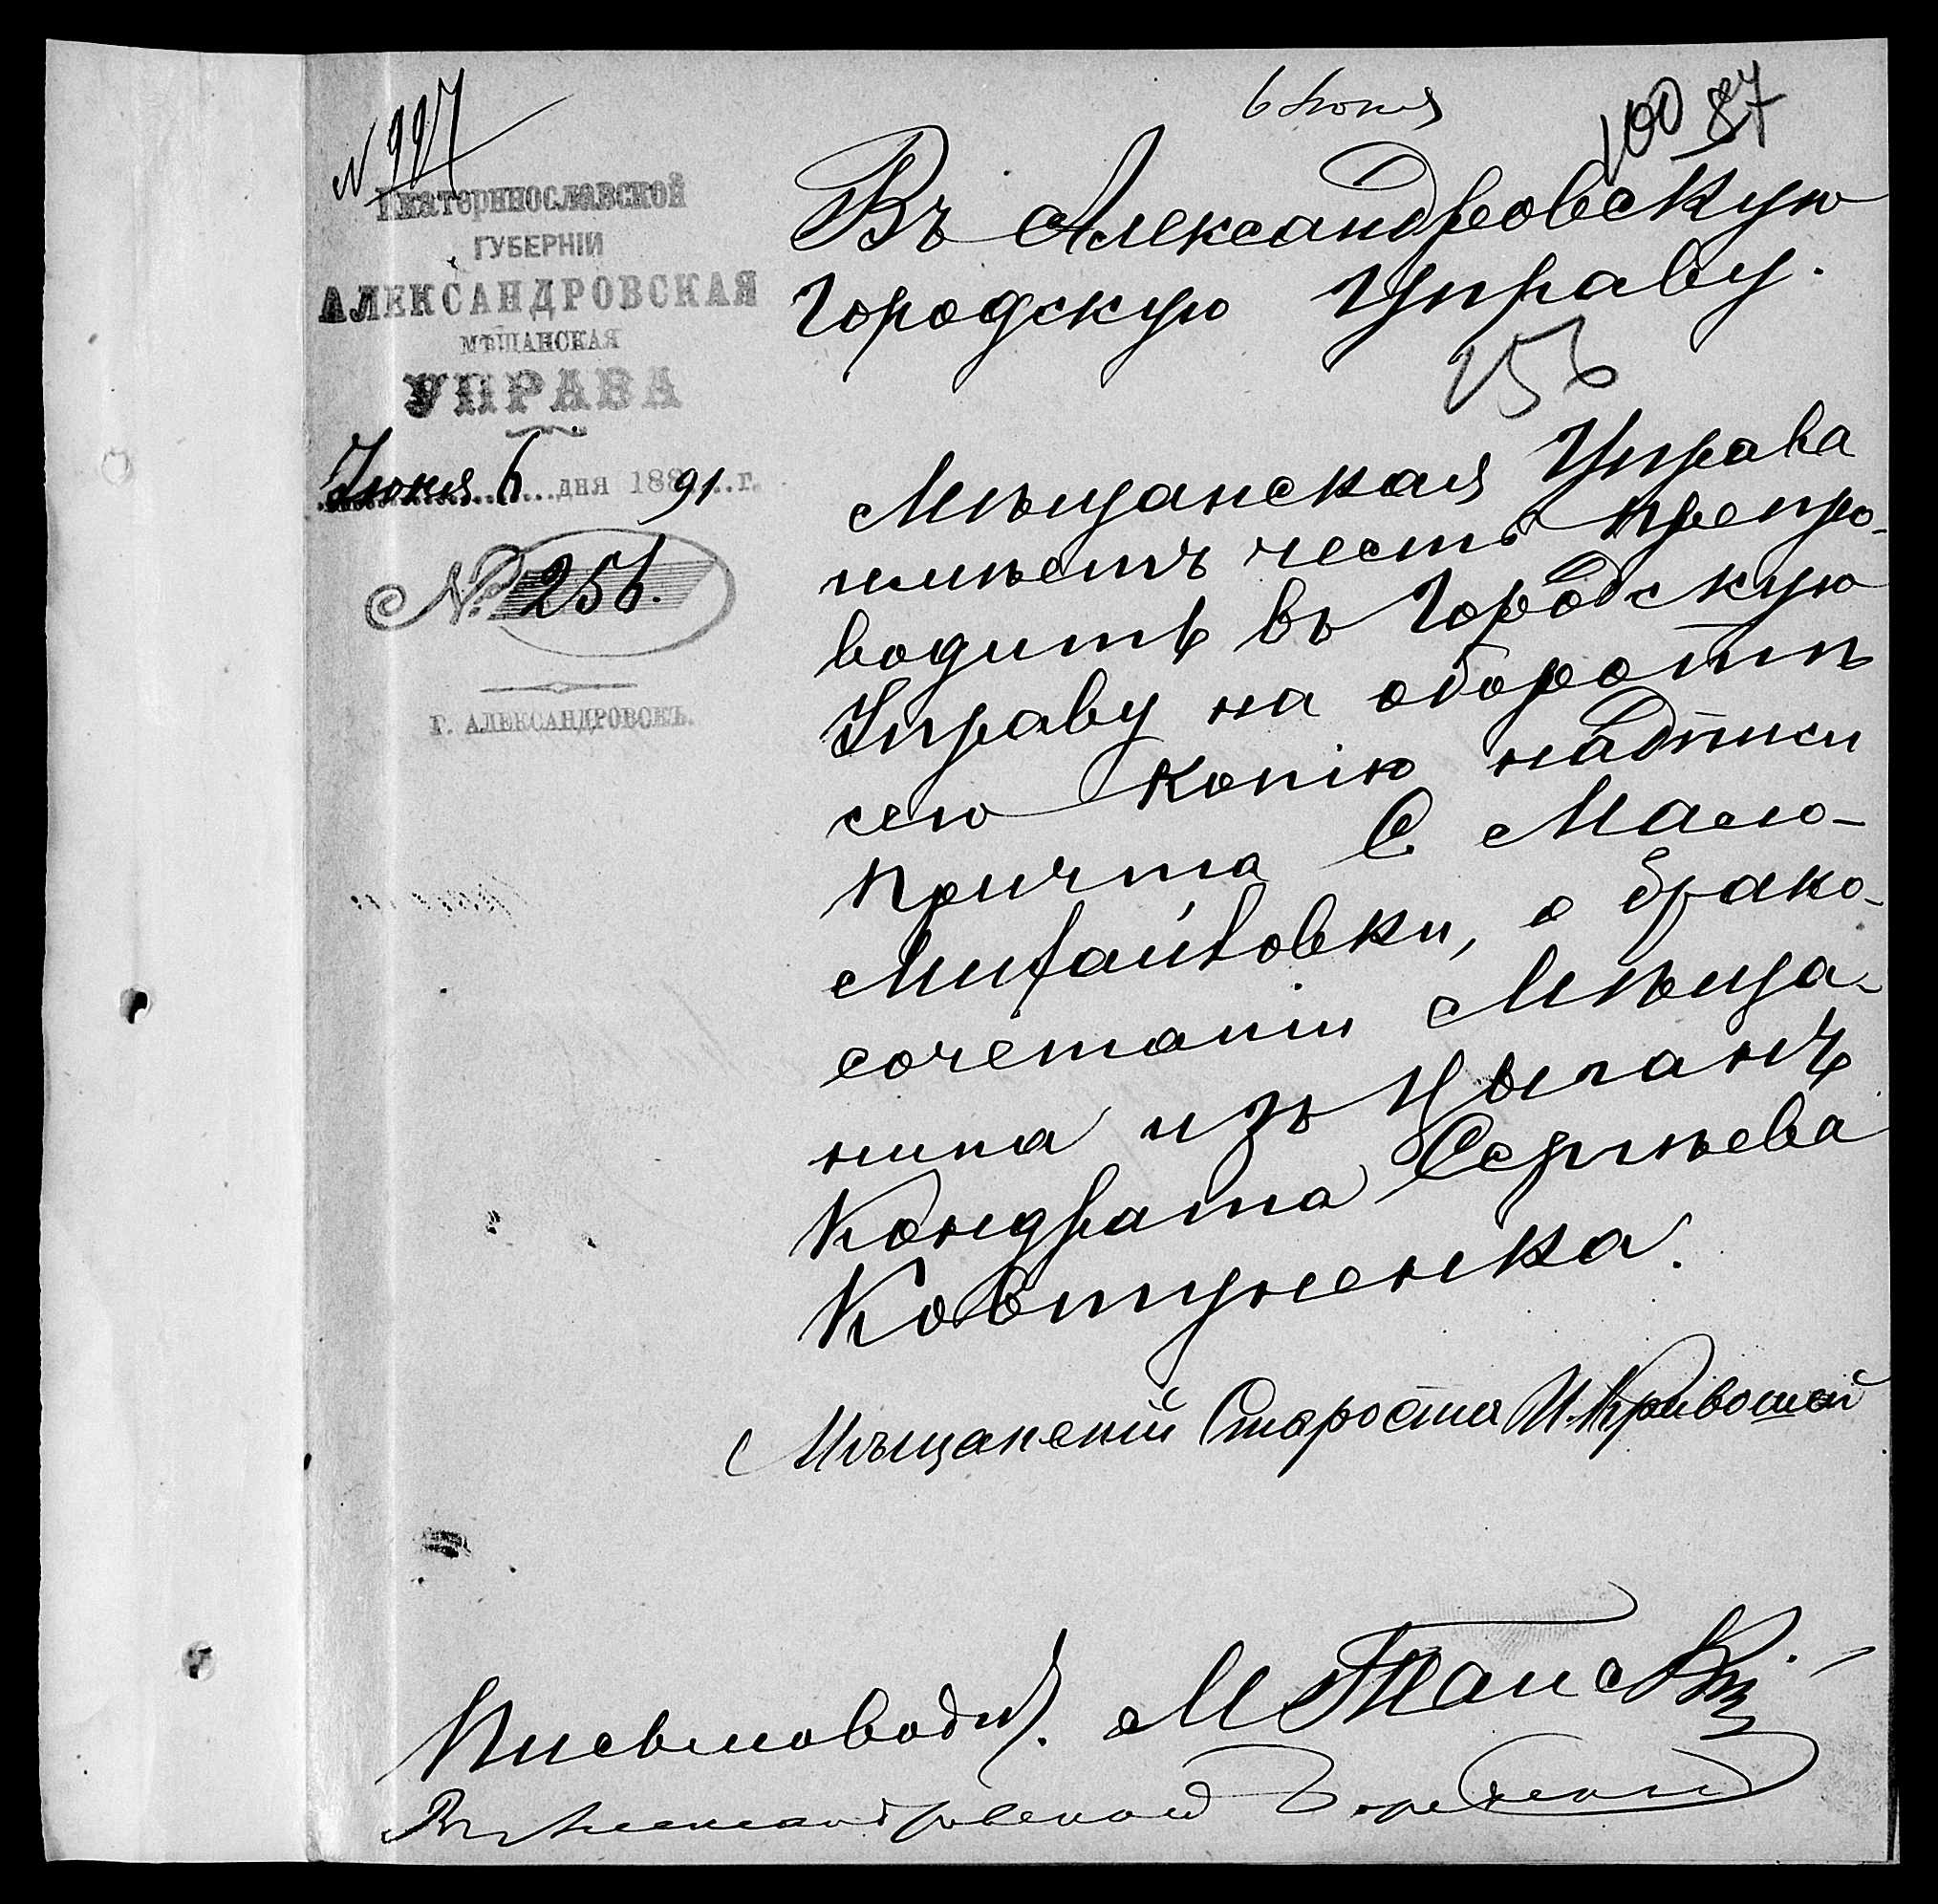 6 Июня
100 87
№ 997
Екатеринославской
ГУБЕРНІИ
АЛЕКСАНДРОВСКАЯ
МѢЩАНСКАЯ
УПРАВА
Июня 6 дня 188 91 г.
№ 256.
Г. АЛЕКСАНДРОВСКЪ.
Въ Александровскую
Городскую Управу.
256
Мѣщанская Управа
имѣетъ честь препро-
водить въ Городскую
Управу на оборотѣ
сего копію надписи
причта С Мало-
Михайловки, о брако-
сочетаніи Мѣща-
нина изъ Цыганъ
Кондрата Сергѣева
Ковтуненка.
Мѣщанскій Староста И. Кривошей
Письмоводит. М